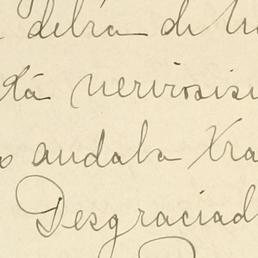 debía de
tá nerviosis
andaba Xra
Desgraciad